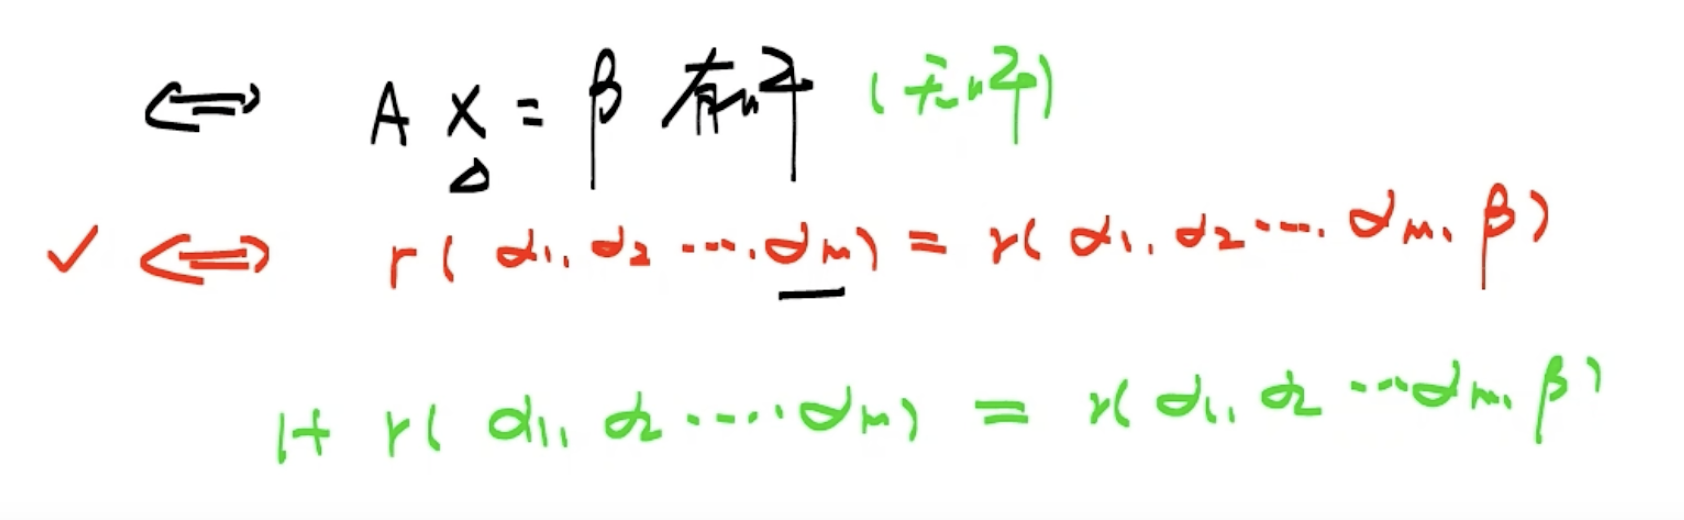 ⟺ A X = β 有解 (无解)
✓ ⟺ r( α₁, α₂ ···, αm ) = r( α₁, α₂ ···, αm, β )
1+ r( α₁, α₂ ····, αm ) = r( α₁, α₂ ··· αm, β )